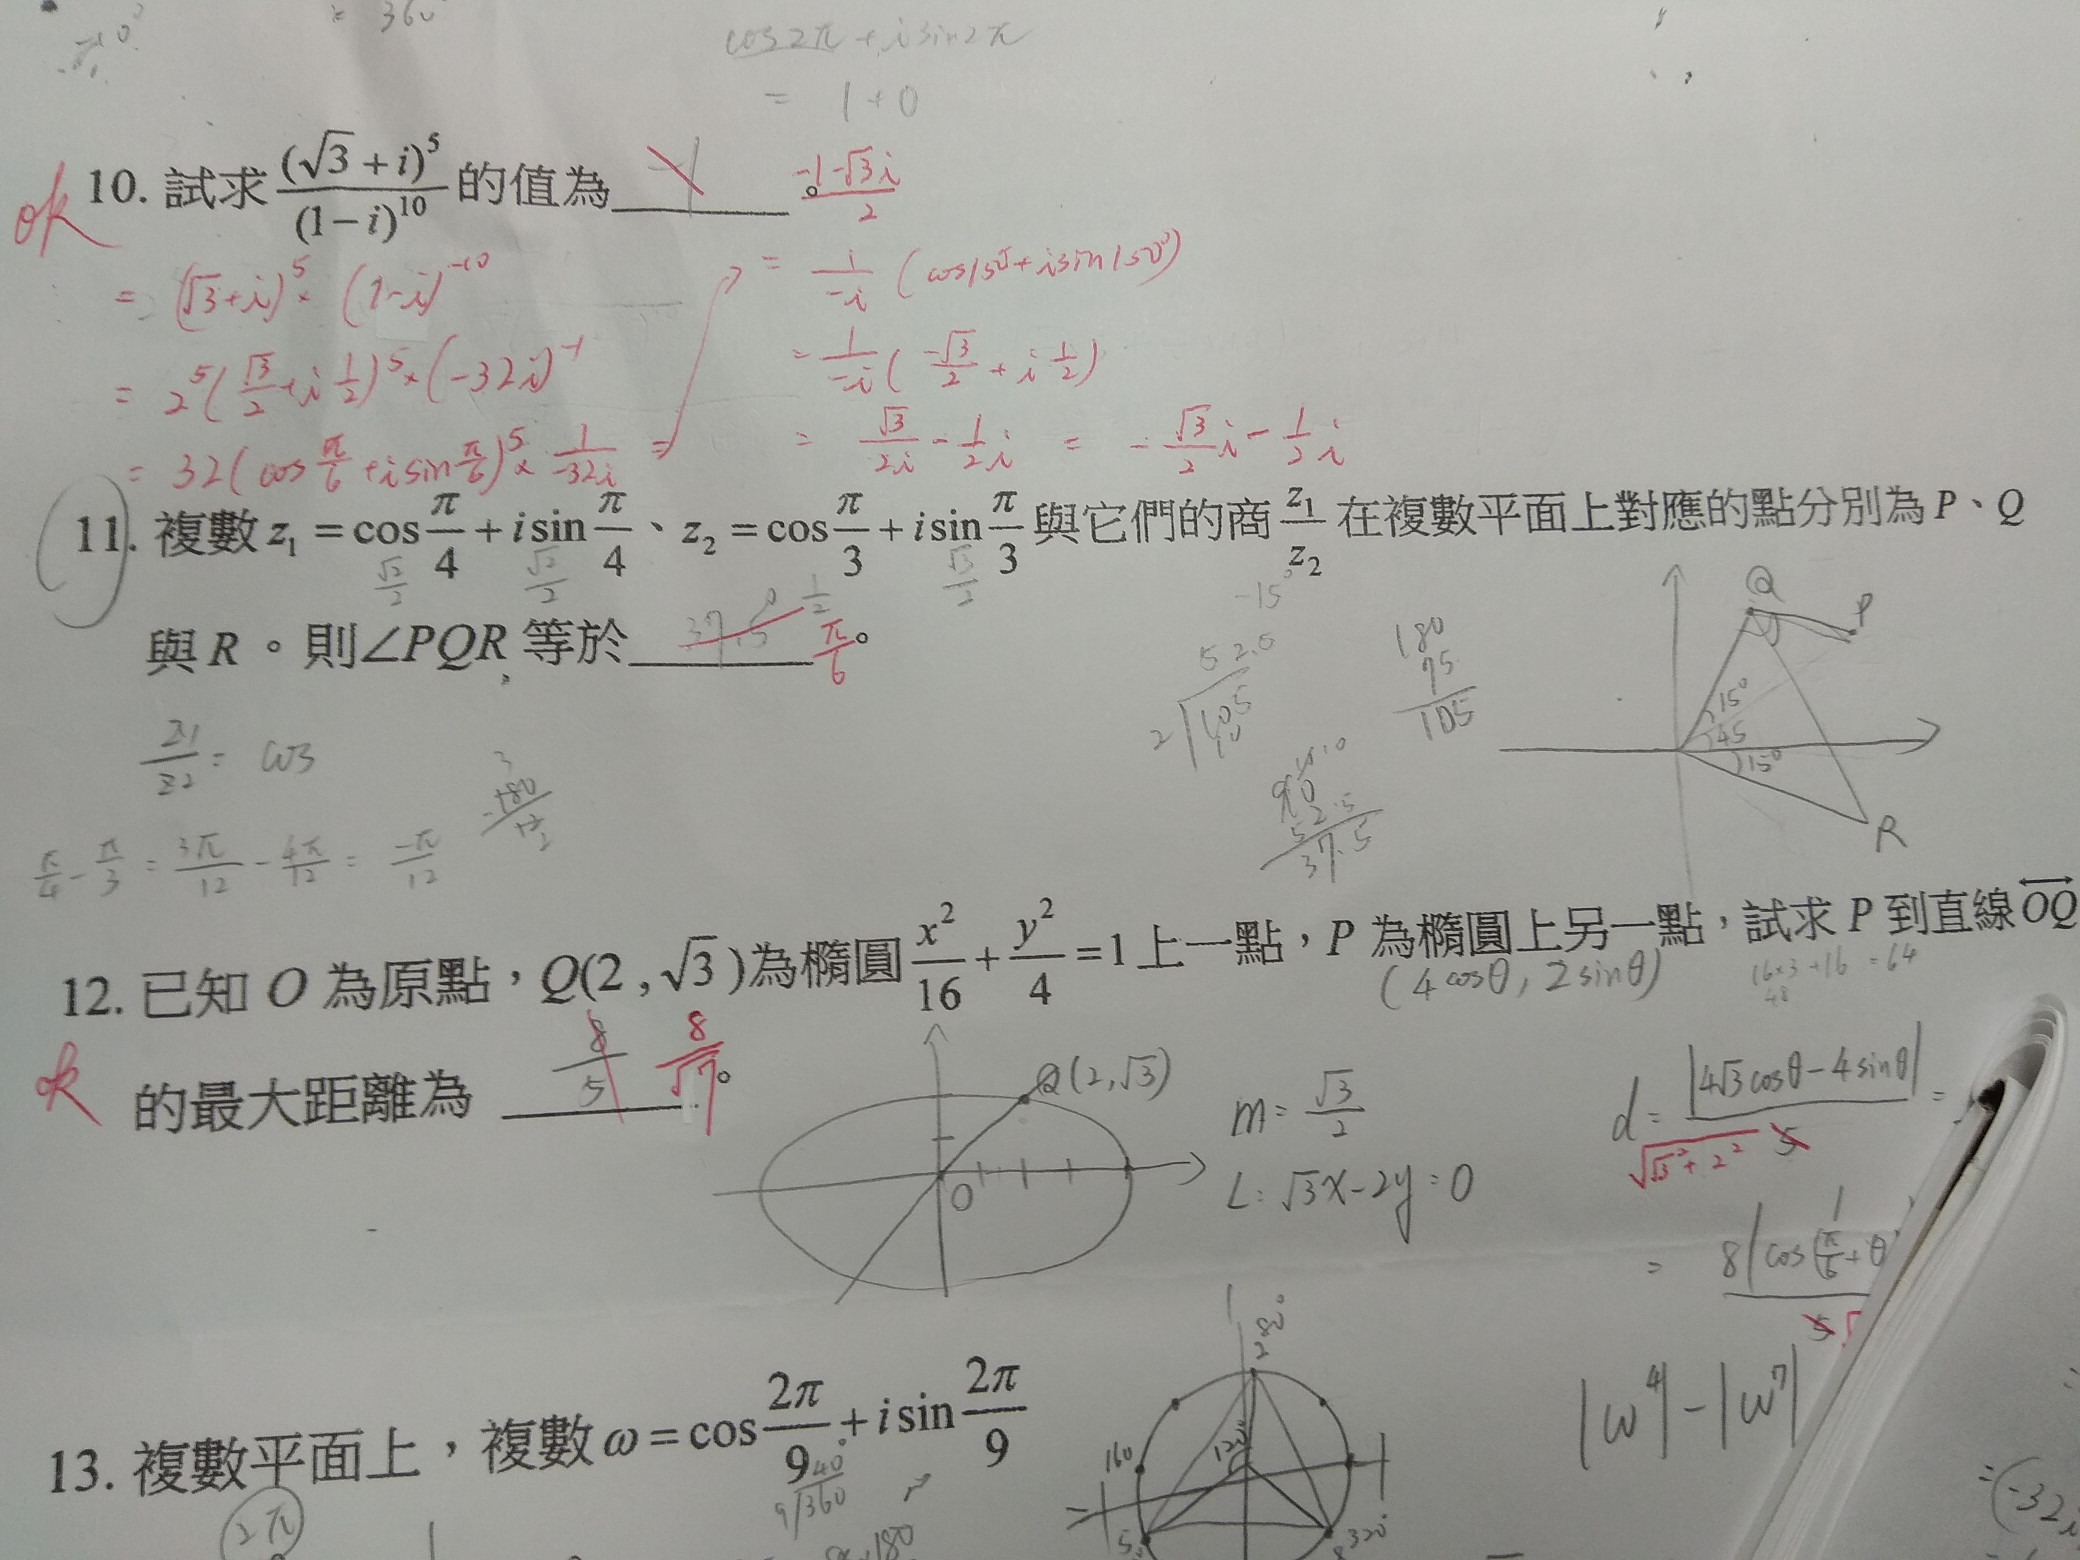 360
cos2π + i sin2π
= 1+0
ok
10. 試求 (√3+i)^5/(1−i)^10 的值為______。 (-1-√3i)/2
= (√3+i)^5 × (1-i)^-10
= 2^5(√3/2 + i 1/2)^5 × (-32i)^-1
= 32(cos π/6 + i sin π/6)^5 × 1/(-32i) =
= i/(-i) (cos150° + i sin150°)
= 1/(-i) (-√3/2 + i 1/2)
= √3/(2i) - 1/2 i = -√3/2 i - 1/2 i
11. 複數 z₁ = cos π/4 + i sin π/4、z₂ = cos π/3 + i sin π/3 與它們的商 z₁/z₂ 在複數平面上對應的點分別為 P、Q
√2/2 √2/2 1/2 √3/2 -15°
與 R。則∠PQR 等於______。 37.5° π/6
z1/z2 = cos
π/4 - π/3 = 3π/12 - 4π/12 = -π/12
52.5
2 105
180
75
105
90
52.5
37.5
Q
P
15°
45
15°
R
12. 已知 O 為原點，Q(2,√3)為橢圓 x²/16 + y²/4 = 1 上一點，P 為橢圓上另一點，試求 P 到直線 OQ
(4cosθ, 2sinθ)
16×3+16 = 64
48
ok
的最大距離為______。 8/5 8/√7
Q(2,√3)
O
m = √3/2
L: √3x-2y=0
d = |4√3cosθ-4sinθ| / √(√3²+2²) 5 =
= 8|cos(π/6+θ
1
5
|w⁴|-|w⁷|
13. 複數平面上，複數 ω = cos 2π/9 + i sin 2π/9
40
9 360
2π
280°
160
120°
320°
5
8
180
=(-32i